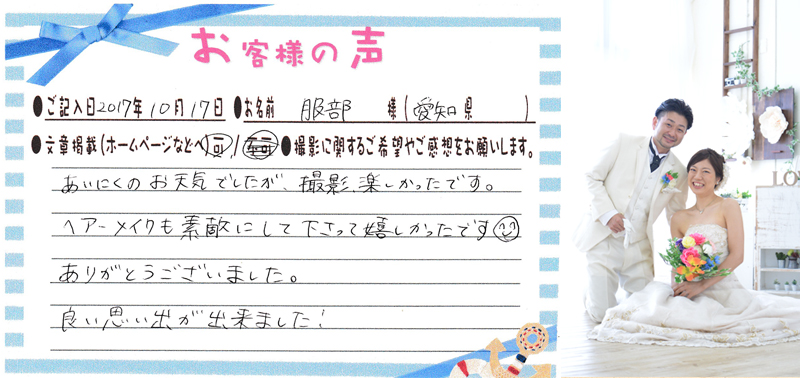 お客様の声
●ご記入日2017年10月17日●お名前 服部 様(愛知県 )
●文章掲載(ホームページなどへ可/否可)●撮影に関するご希望やご感想をお願いします。
あいにくのお天気でしたが、撮影、楽しかったです。
ヘアーメイクも素敵にして下さって嬉しかったです
ありがとうございました。
良い思い出が出来ました!
LO